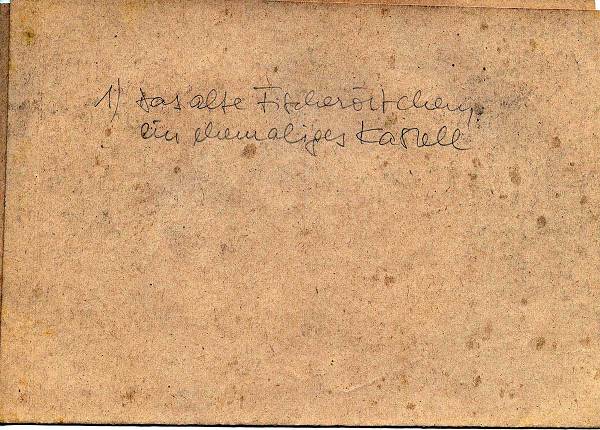 1) das alte Fischerörtchen,
ein ehemaliges Kastell